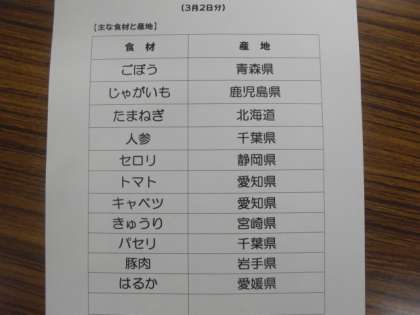 (3月2日分)
【主な食材と産地】
食材 産地
ごぼう 青森県
じゃがいも 鹿児島県
たまねぎ 北海道
人参 千葉県
セロリ 静岡県
トマト 愛知県
キャベツ 愛知県
きゅうり 宮崎県
パセリ 千葉県
豚肉 岩手県
はるか 愛媛県